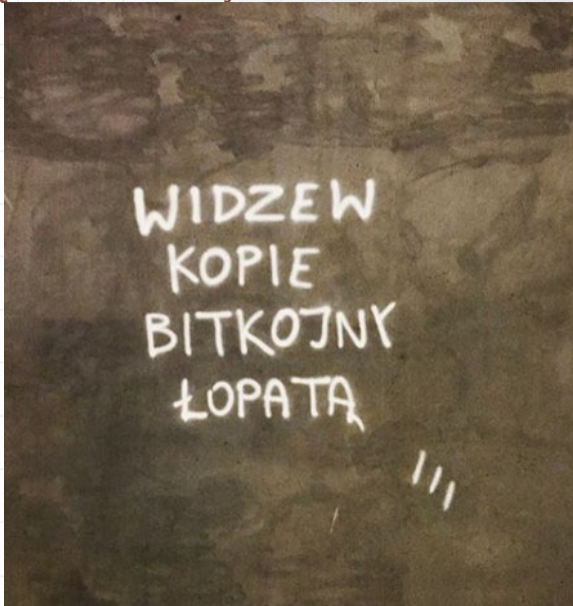 WIDZEW
KOPIE
BITKOJNY
ŁOPATĄ